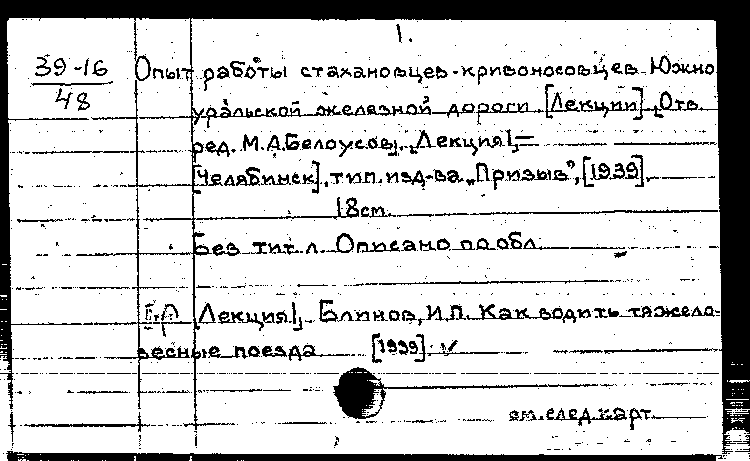 1.
39-16
48
Опыт работы стахановцев-кривоносовцев Южно
уральской железной дороги. [Лекции]. [Отв.
ред. М.А. Белоусов]. Лекция 1,=
[Челябинск], тип. изд-ва "Призыв", [1939].
18 см.
Без тит. л. Описано по обл.
[Лекция] 1. Блинов, И.П. Как водить тяжело-
весные поезда [1939]. ✓
см. след. карт.